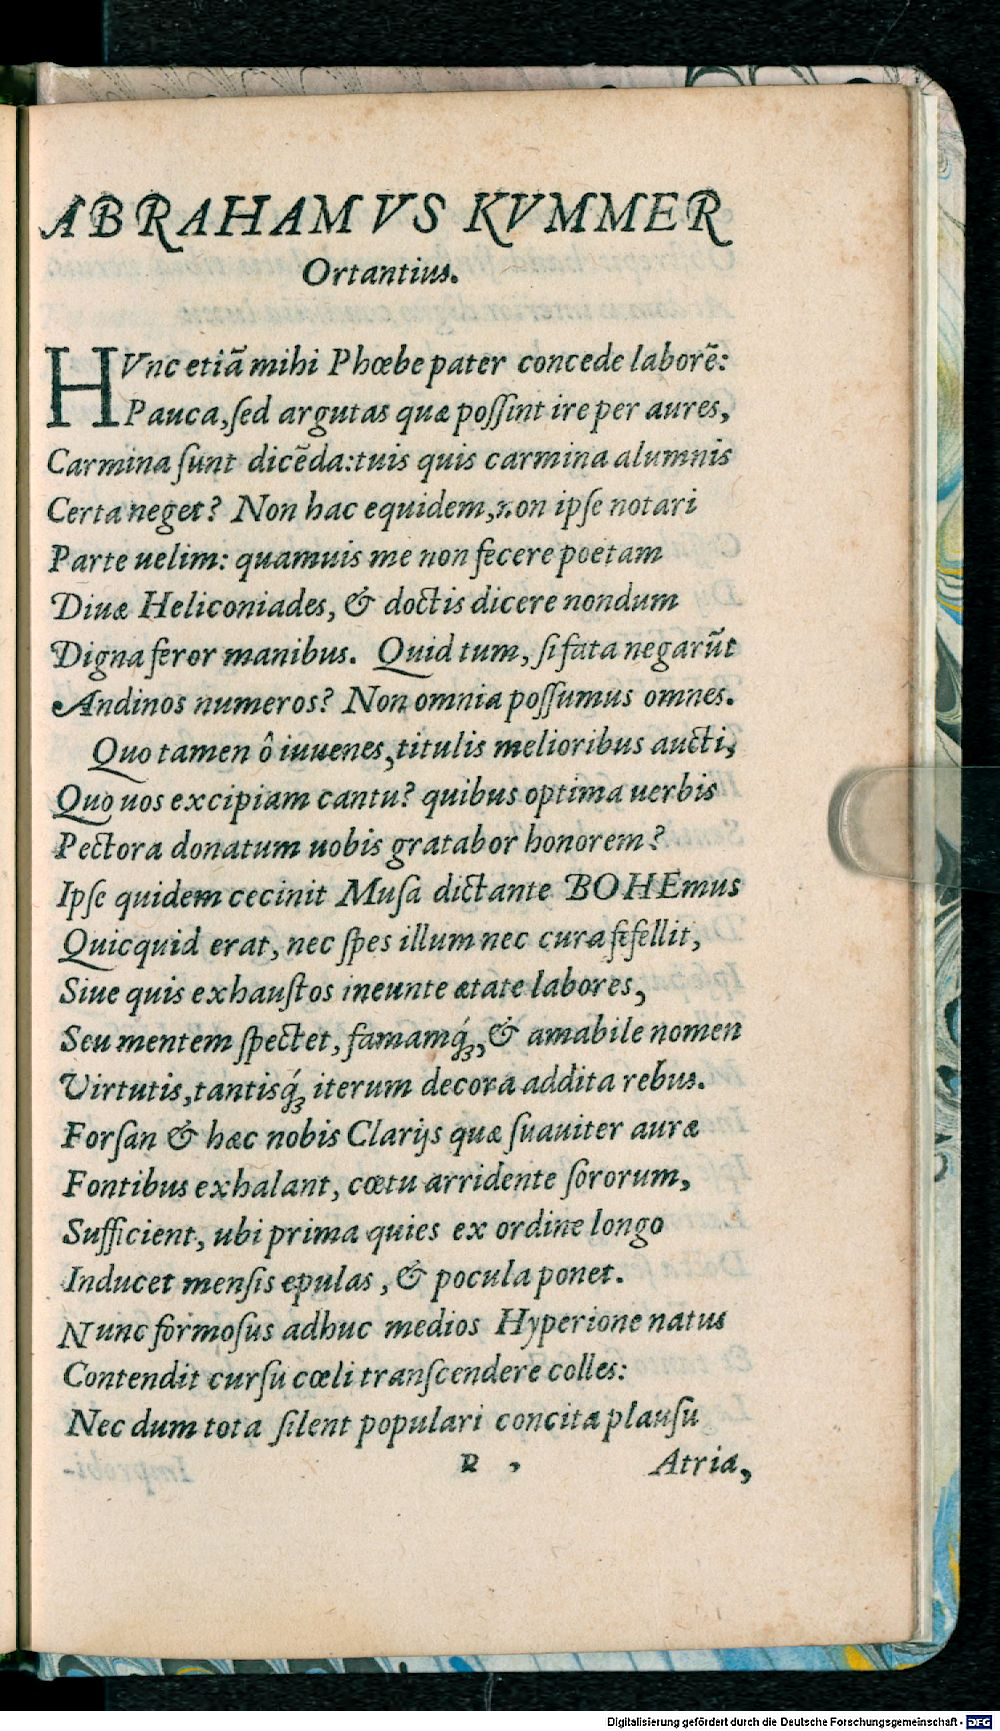 ABRAHAMVS KVMMER
Ortantius.
HVnc etiã mihi Phœbe pater concede laborẽ:
Pauca, ſed argutas quæ poſſint ire per aures,
Carmina ſunt dicẽda: tuis quis carmina alumnis
Certa neget? Non hac equidem, non ipſe notari
Parte uelim: quamuis me non fecere poetam
Diuæ Heliconiades, & doctis dicere nondum
Digna feror manibus. Quid tum, ſi fata negarũt
Andinos numeros? Non omnia poſſumus omnes.
Quo tamen ô iuuenes, titulis melioribus aucti,
Quo uos excipiam cantu? quibus optima uerbis
Pectora donatum uobis gratabor honorem?
Ipſe quidem cecinit Muſa dictante BOHEmus
Quicquid erat, nec ſpes illum nec cura fefellit,
Siue quis exhauſtos ineunte ætate labores,
Seu mentem ſpectet, famamq́ꝫ, & amabile nomen
Virtutis, tantisq́ꝫ iterum decora addita rebus.
Forſan & hæc nobis Clarijs quæ ſuauiter auræ
Fontibus exhalant, cœtu arridente ſororum,
Sufficient, ubi prima quies ex ordine longo
Inducet menſis epulas, & pocula ponet.
Nunc formoſus adhuc medios Hyperione natus
Contendit curſu cœli tranſcendere colles:
Nec dum tota ſilent populari concita plauſu
Atria,
Digitalisierung gefördert durch die Deutsche Forschungsgemeinschaft - DFG